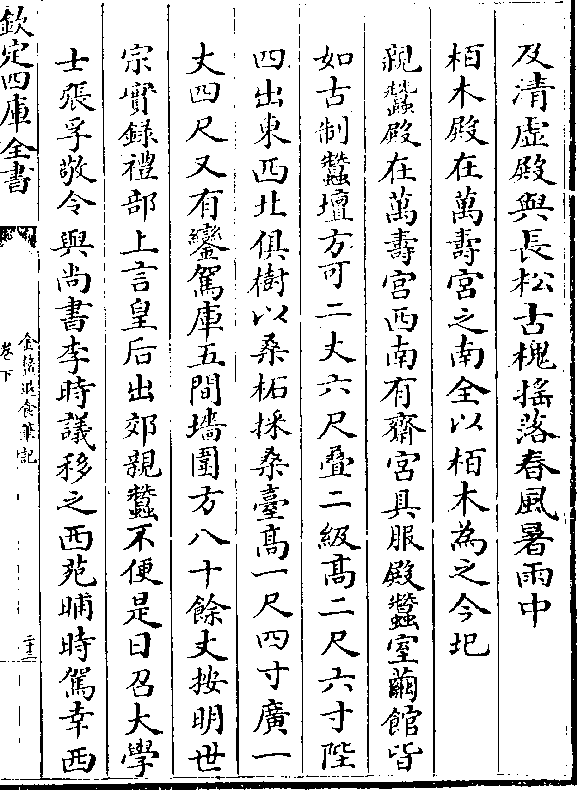 及清虛殿與長松古槐搖落春風暑雨中
栢木殿在萬壽宮之南全以栢木為之今圯
親蠶殿在萬壽宮西南有齋宮具服殿蠶室繭館皆
如古制蠶壇方可二丈六尺疊二級高二尺六寸陛
四出東西北俱樹以桑柘採桑臺高一尺四寸廣一
丈四尺又有鑾駕庫五間墻圍方八十餘丈按明世
宗實錄禮部上言皇后出郊親蠶不便是日召大學
士張孚敬令與尚書李時議移之西苑晡時駕幸西
欽定四庫全書
金鰲退食筆記
卷下
二十三